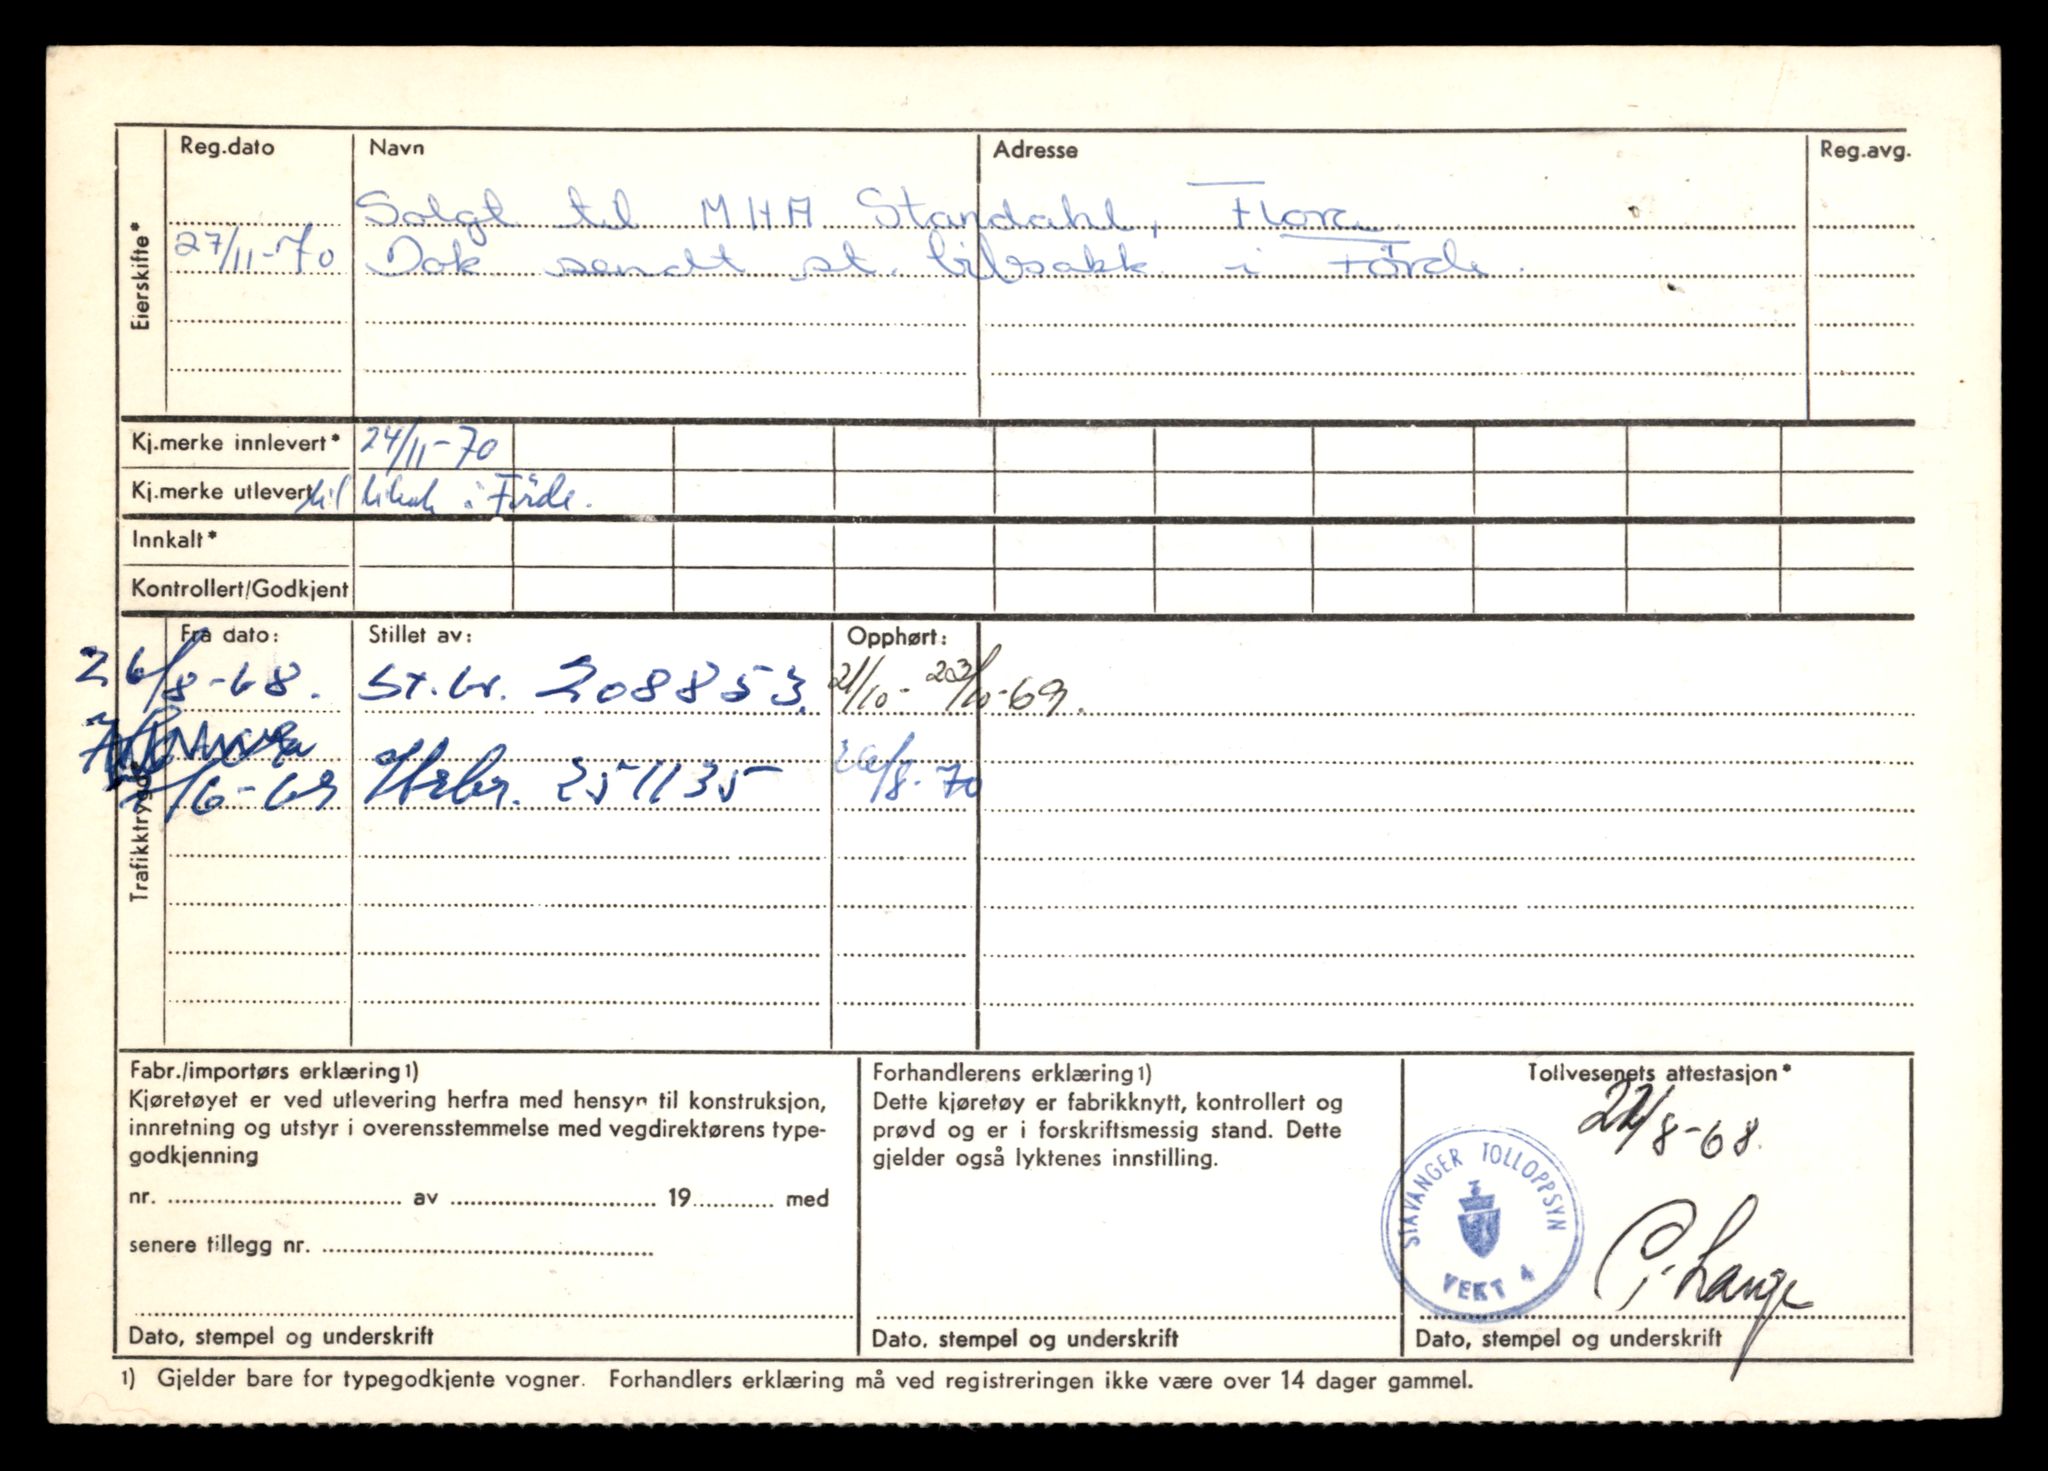 Reg.dato Navn Adresse Reg.avg.
Eierskifte*
Solgt til M.H.A Standahl, Flora
27/11-70 Dok sendt st. bilsakk. i Förde.
Kj.merke innlevert* 24/11-70
Kj.merke utlevert til bilsak i Förde.
Innkalt*
Kontrollert/Godkjent
Trafikktrygd*
Fra dato: Stillet av: Opphørt:
26/8-68. St.br. 208853. 21/10- /10-69.
/6-69 251135 26/8-70
Fabr./importørs erklæring1)
Kjøretøyet er ved utlevering herfra med hensyn til konstruksjon,
innretning og utstyr i overensstemmelse med vegdirektørens type-
godkjenning
nr. av 19 med
senere tillegg nr.
Dato, stempel og underskrift
Forhandlerens erklæring1)
Dette kjøretøy er fabrikknytt, kontrollert og
prøvd og er i forskriftsmessig stand. Dette
gjelder også lyktenes innstilling.
Dato, stempel og underskrift
Tollvesenets attestasjon*
22/8-68.
STAVANGER TOLLOPPSYN
VEKT 4
Lange
Dato, stempel og underskrift
1) Gjelder bare for typegodkjente vogner. Forhandlers erklæring må ved registreringen ikke være over 14 dager gammel.